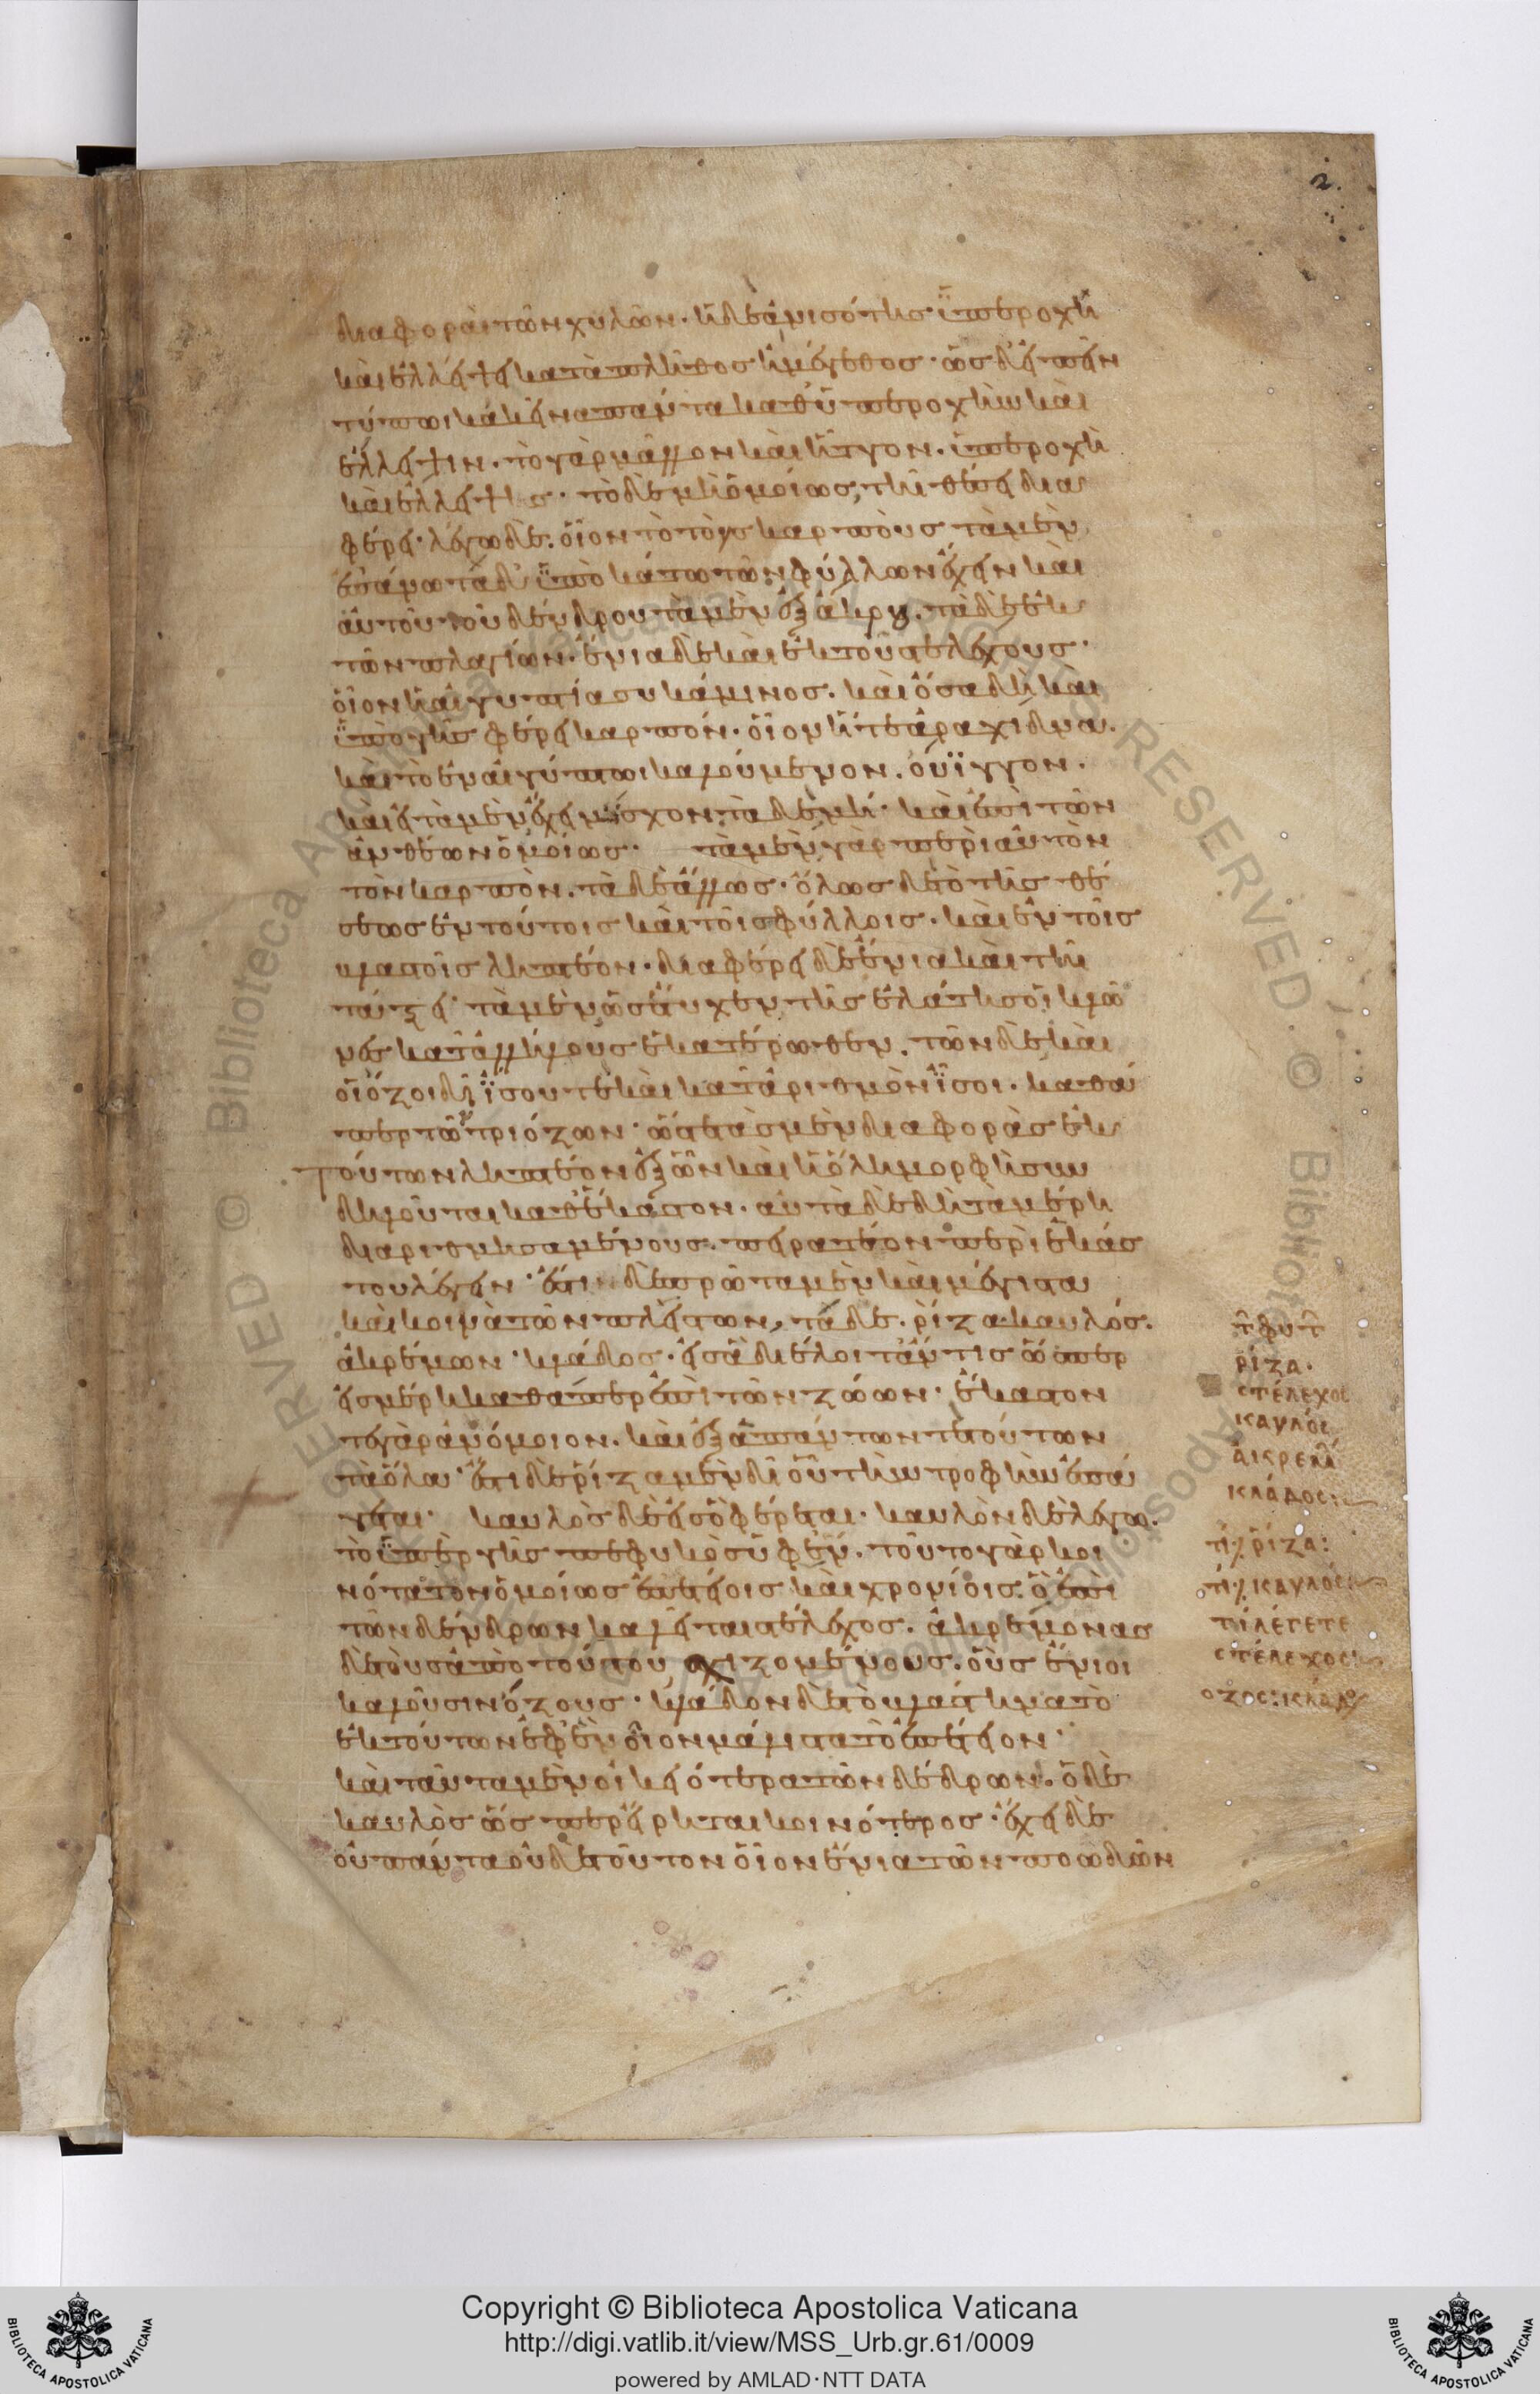 2.
διαφοραὶ τῶν χυλῶν· ἡ δὲ ἀνισότης ὑπεροχῆ
καὶ ἐλλείψει κατὰ πλῆθος ἢ μέγεθος· ὡς δ' εἰπεῖν
τύπωι κἀκεῖνα πάντα καθ' ὑπεροχὴν καὶ
ἔλλειψιν. τὸ γὰρ μᾶλλον καὶ ἧττον. ὑπεροχὴ
καὶ ἔλλειψις· τὸ δὲ μὴ ὁμοίως, τῆ θέσει δια
φέρει· λέγω δὲ. οἷον τὸ τοὺς καρποὺς τὰ μὲν
ἐπάνω τὰ δ' ὑποκάτω τῶν φύλλων ἔχειν καὶ
αὐτοῦ τοῦ δένδρου τὰ μὲν ἐξ ἄκρου. τὰ δὲ ἐκ
τῶν πλαγίων· ἔνια δὲ καὶ ἐκ τοῦ στελέχους·
οἷον ἡ αἰγυπτία συκάμινος. καὶ ὅσα δὴ καὶ
ὑπὸ γῆς φέρει καρπόν· οἷον ἥ τε ἀραχιδνα.
καὶ τὸ ἐν αἰγύπτωι καλούμενον. οὐϊγγον.
καὶ εἰ τὰ μὲν ἔχει μίσχον τὰ δὲ μή· καὶ ἐπὶ τῶν
ἀνθέων ὁμοίως· τὰ μὲν γὰρ περὶ αὐτὸν
τὸν καρπὸν. τὰ δὲ ἄλλως· ὅλως δὲ τὸ τῆς θέ
σεως ἐν τούτοις καὶ τοῖς φύλλοις. καὶ ἐν τοῖς
βλαστοῖς ληπτέον· διαφέρει δὲ ἔνια καὶ τῆ
τάξει· τὰ μὲν ὡς ἔτυχεν τῆς ἐλάτης οἱ κλῶ
νές κατ' ἀλλήλους ἑκατέρωθεν. τῶν δὲ καὶ
οἱ ὄζοι δι' ἴσου τε καὶ κατ' ἀριθμὸν ἴσοι. καθά
περ τῶν τριόζων· ὥστε τὰς μὲν διαφορὰς ἐκ
τούτων ληπτέον ἐξ ὧν καὶ ἡ ὅλη μορφὴ συν
δηλοῦται καθ' ἕκαστον. αὐτὰ δὲ δὴ τὰ μέρη
διαριθμησαμένους. πειρατέον περὶ ἑκάσ
του λέγειν· ἔστι δὲ πρῶτα μὲν καὶ μέγιστα
καὶ κοινὰ τῶν πλείστων, τάδε. ῥίζα καυλός.
ἀκρέμων· κλάδος· εἰς ἃ διέλοιτ' ἄν τις ὥσπερ
εἰς μέρη καθάπερ ἐπὶ τῶν ζώων· ἕκαστον
τε γὰρ ἀνόμοιον. καὶ ἐξ ἁπάντων τούτων
τὰ ὅλα· ἔστι δὲ ῥίζα μὲν δι' οὗ τὴν τροφὴν ἐπά
γεται· καυλὸς δὲ εἰς ὃ φέρεται· καυλὸν δὲ λέγω.
τὸ ὑπὲρ γῆς πεφυκὸς ἐφ' ἕν. τοῦτο γὰρ κοι
νότατον ὁμοίως ἐπετείοις καὶ χρονίοις. ὃ ἐπὶ
τῶν δένδρων καλεῖται στέλεχος. ἀκρέμονας
δὲ τοὺς ἀπὸ τούτου σχιζομένους. οὓς ἔνιοι
καλοῦσιν ὄζους· κλάδον δὲ τὸ βλάστημα τὸ
ἐκ τούτων ἐφ' ἓν οἷον μάλιστα τὸ ἐπέτειον·
καὶ ταῦτα μὲν οἰκειότερα τῶν δέδρων. ὁ δὲ
καυλὸς ὥς περ εἴρηται κοινότερος· ἔχει δὲ
οὐ πάντα οὐδὲ τοῦτον οἷον ἔνια τῶν ποωδῶν
ῥίζα·
στέλεχος
καυλός
κλάδος:
τί ῥίζα:
τί καυλός
τί λέγετε
στέλεχος:
Copyright © Biblioteca Apostolica Vaticana
http://digi.vatlib.it/view/MSS_Urb.gr.61/0009
powered by AMLAD·NTT DATA
BIBLIOTECA APOSTOLICA VATICANA
BIBLIOTECA APOSTOLICA VATICANA